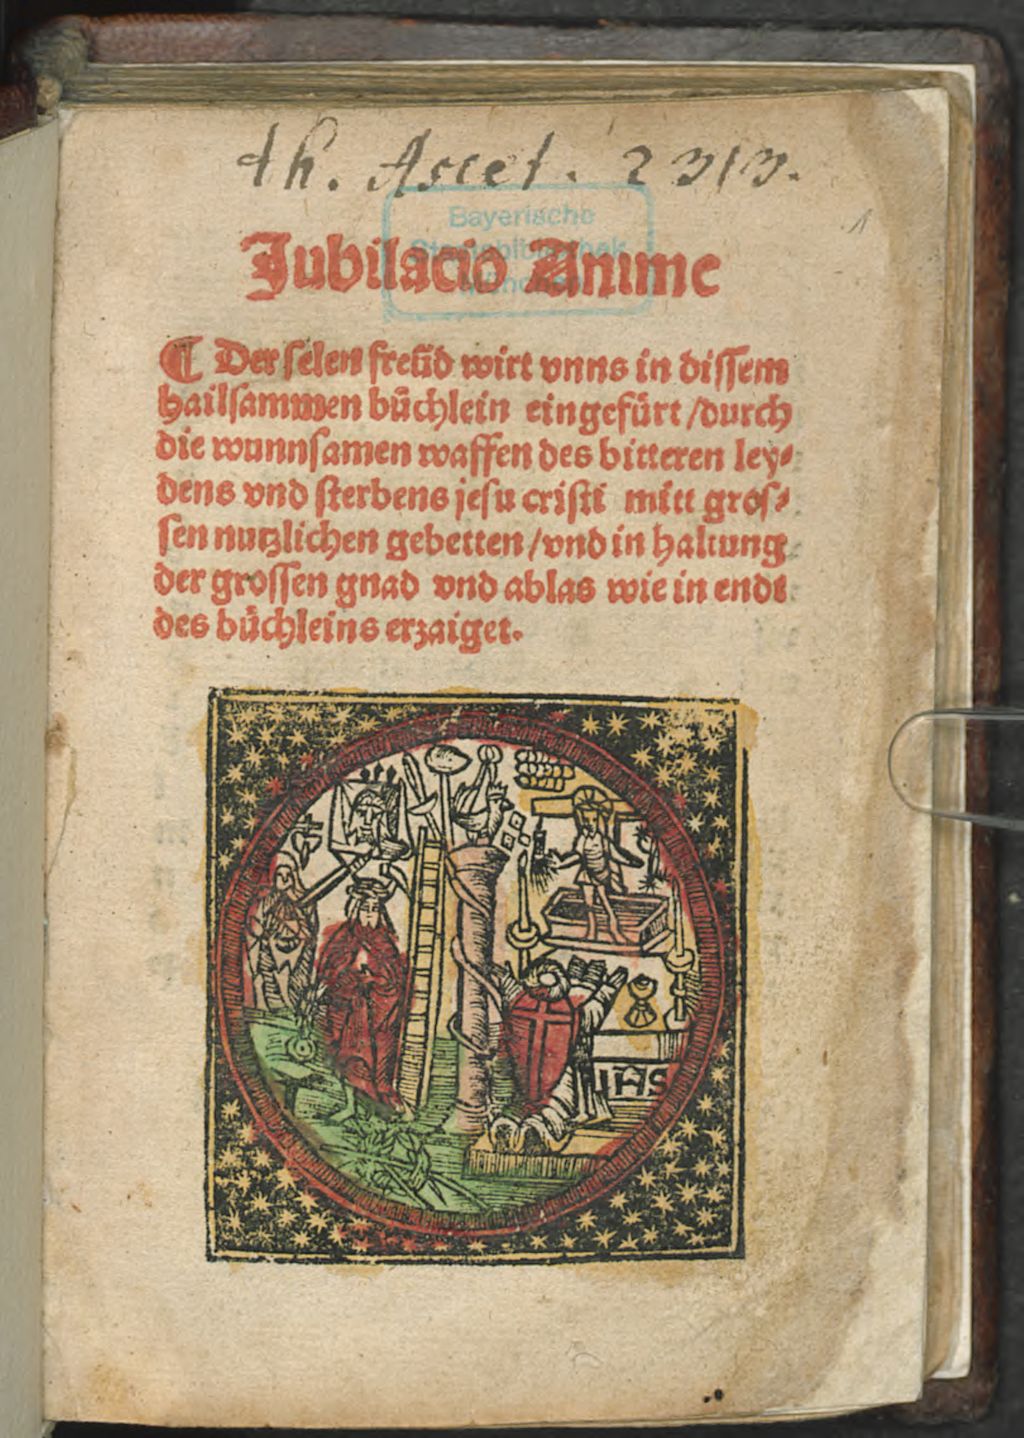 th. Ascet. 2313.
1
Bayerische
Staatsbibliothek
München
Jubilacio Anime
¶ Der selen freüd wirt vnns in dissem
hailsammen bůchlein eingefürt /durch
die wunnsamen waffen des bitteren ley⸗
dens vnd sterbens jesu cristi mitt gros⸗
sen nutzlichen gebetten /vnd in haltung
der grossen gnad vnd ablas wie in endt
des bůchleins erzaiget.
IHS